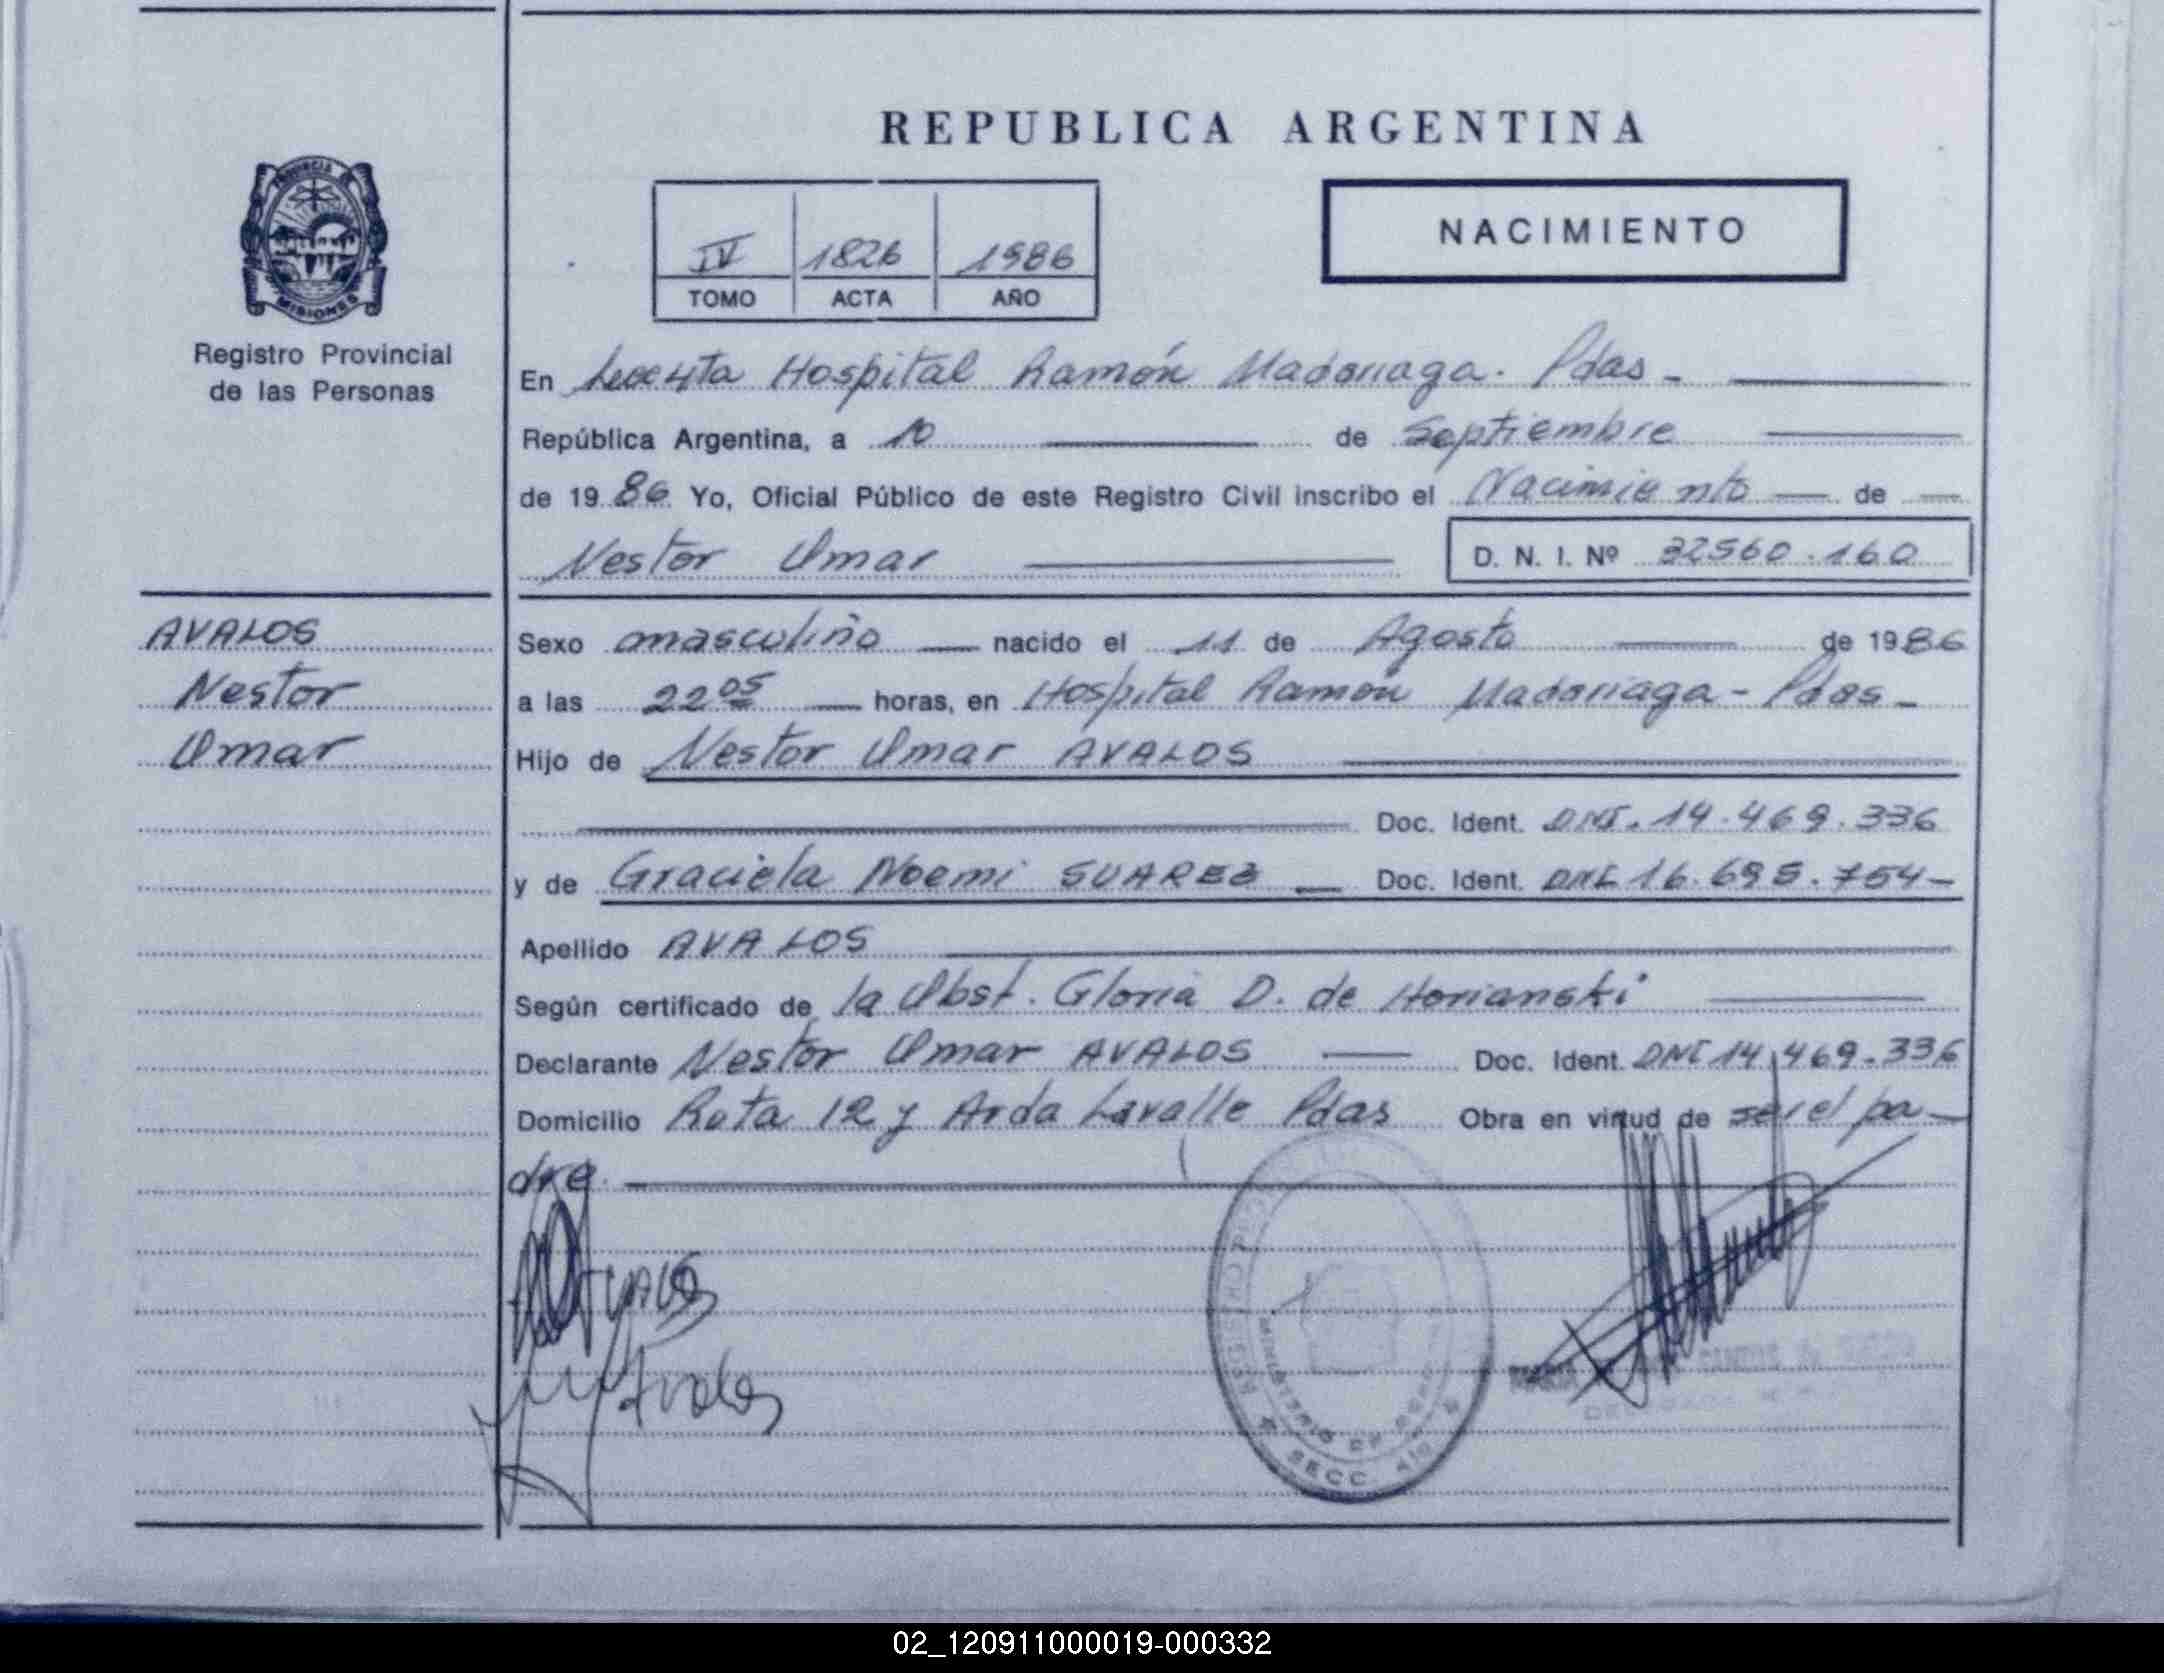 PROVINCIA DE
MISIONES
Registro Provincial
de las Personas
REPUBLICA ARGENTINA
IV 1826 1986
TOMO ACTA AÑO
NACIMIENTO
En Hospital Ramón Madariaga. Pdas -
República Argentina, a 10 de Septiembre
de 1986 Yo, Oficial Público de este Registro Civil inscribo el Nacimiento de
Nestor Omar D. N. I. Nº 32560.160
AVALOS
Nestor
Omar
Sexo masculino nacido el 11 de Agosto de 1986
a las 22 05 horas, en Hospital Ramón Madariaga - Pdas -
Hijo de Nestor Omar AVALOS
Doc. Ident. DNI. 14.469.336
y de Graciela Noemi SUAREZ Doc. Ident. DNI 16.695.754-
Apellido AVALOS
Según certificado de la Obst. Gloria D. de Horianski
Declarante Nestor Omar AVALOS Doc. Ident. DNI 14.469.336
Domicilio Ruta 12 y Avda Lavalle Pdas Obra en virtud de ser el pa-
dre.
Avalos
MINISTERIO DE
SECC.
02_120911000019-000332